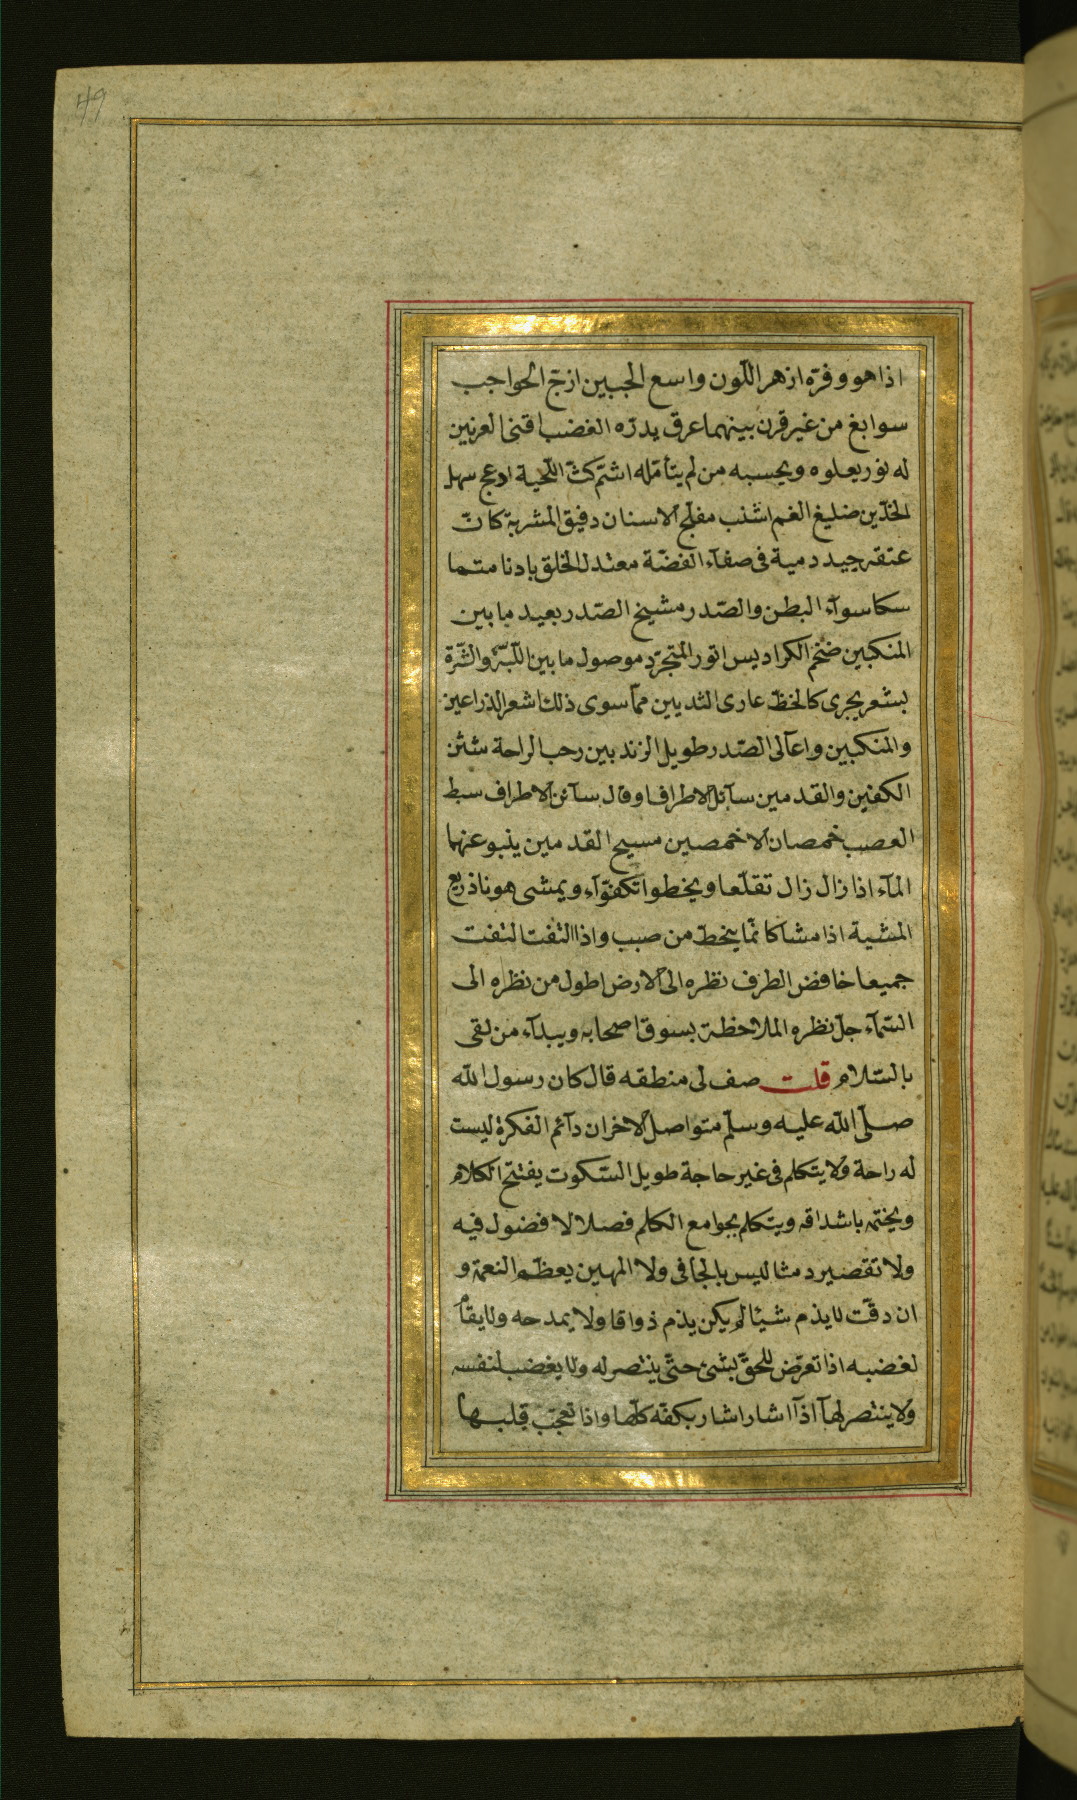 49
اذا هو وفرة ازهر اللّون واسع الجبين ازجّ الحواجب
سوابغ من غير قرن بينهما عرق يدرّه الغضب اقنى العرنين
له نور يعلوه ويحسبه من لم يتأمّله اشمّ كثّ اللّحية ادعج سهل
الخدّين ضليع الفم اشنب مفلّج الاسنان دقيق المشربة كانّ
عنقه جيد دمية فى صفآء الفضّة معتدل الخلق بادنا متما
سكا سوآء البطن والصّدر مشيخ الصّدر بعيد ما بين
المنكبين ضخم الكراديس انور المتجرّد موصول ما بين اللّبّة والسّرّة
بشعر يجرى كالخطّ عارى الثديين ممّا سوى ذلك اشعر الذراعين
والمنكبين واعآلى الصّدر طويل الزندين رحب الراحة شثن
الكفين والقدمين سآئل الاطراف او قال سآئن الاطراف سبط
العصب خمصان الاخمصين مسيح القدمين ينبو عنهما
المآء اذا زال زال تقلّعا ويخطوا تكفّوآء ويمشى هونا ذريع
المشية اذا مشا كانّما ينحطّ من صبب واذا التفت التفت
جميعا خافض الطرف نظره الى الارض اطول من نظره الى
السّمآء جلّ نظره الملاحظة يسوق اصحابه ويبدآء من لقى
بالسّلام قلت صف لى منطقه قال كان رسول الله
صلّى الله عليه وسلّم متواصل الاحزان دآئم الفكرة ليست
له راحة ولا يتكلم فى غير حاجة طويل السّكوت يفتتح الكلام
ويختمه باشداقه ويتكلم بجوامع الكلم فصلا لا فضول فيه
ولا تقصير دمثا ليس بالجافى ولا المهين يعظّم النعمة و
ان دقّت لا يذم شيئا لم يكن يذم ذواقا ولا يمدحه ولا يقام
لغضبه اذا تعرّض للحقّ بشئ حتّى ينتصر له ولا يغضب لنفسه
ولا ينتصر لهآ اذآ اشار اشار بكفّه كلّها واذا تعجّب قلبها